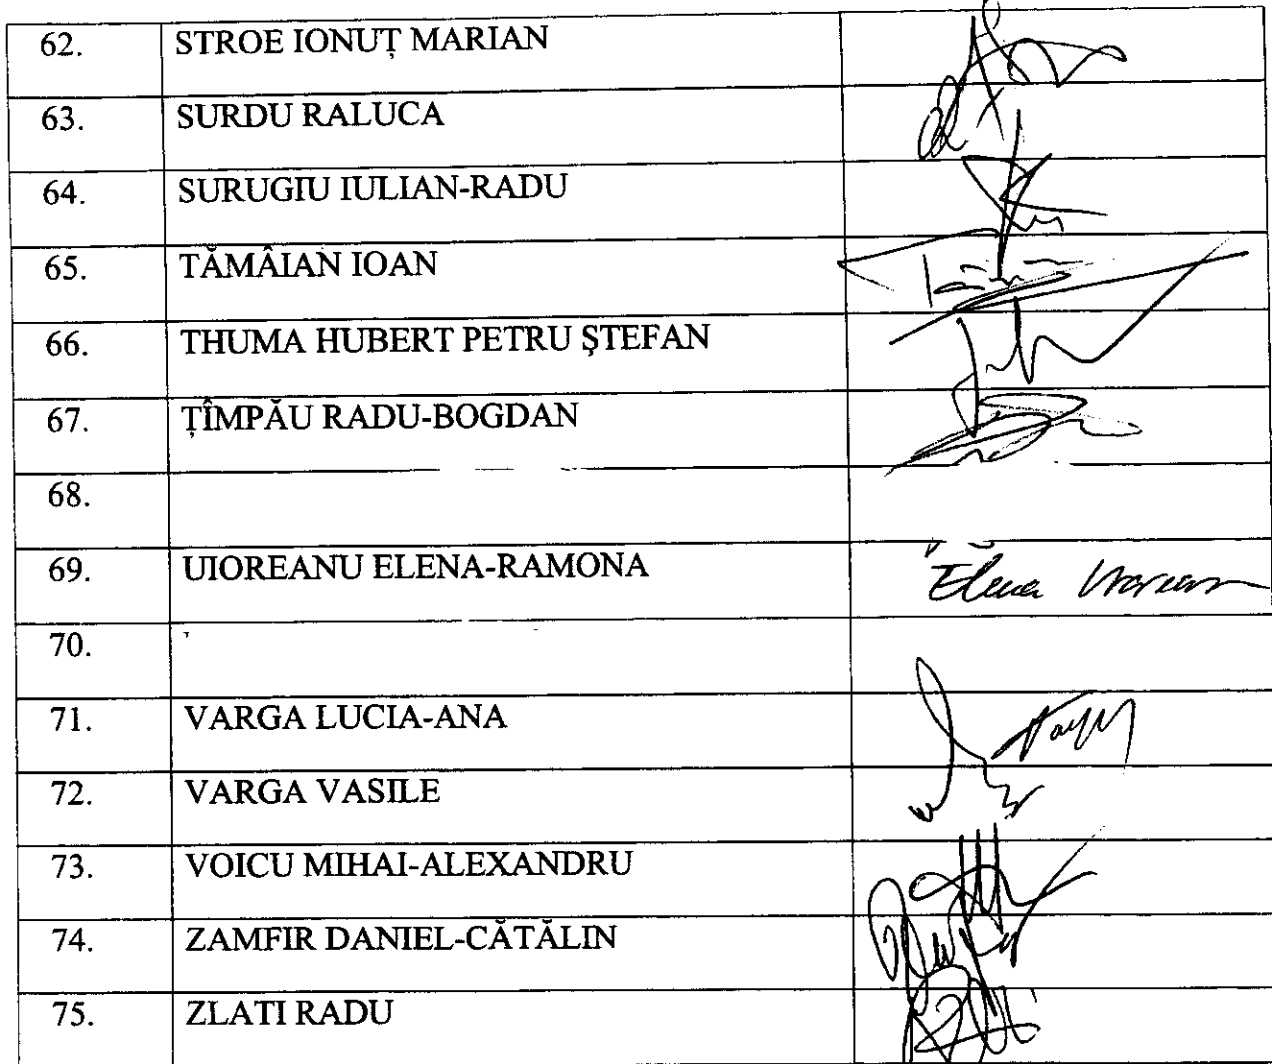 62. STROE IONUȚ MARIAN
63. SURDU RALUCA
64. SURUGIU IULIAN-RADU
65. TĂMÂIAN IOAN
66. THUMA HUBERT PETRU ȘTEFAN
67. ȚÎMPĂU RADU-BOGDAN
68.
69. UIOREANU ELENA-RAMONA Elena
70.
71. VARGA LUCIA-ANA
72. VARGA VASILE
73. VOICU MIHAI-ALEXANDRU
74. ZAMFIR DANIEL-CĂTĂLIN
75. ZLATI RADU